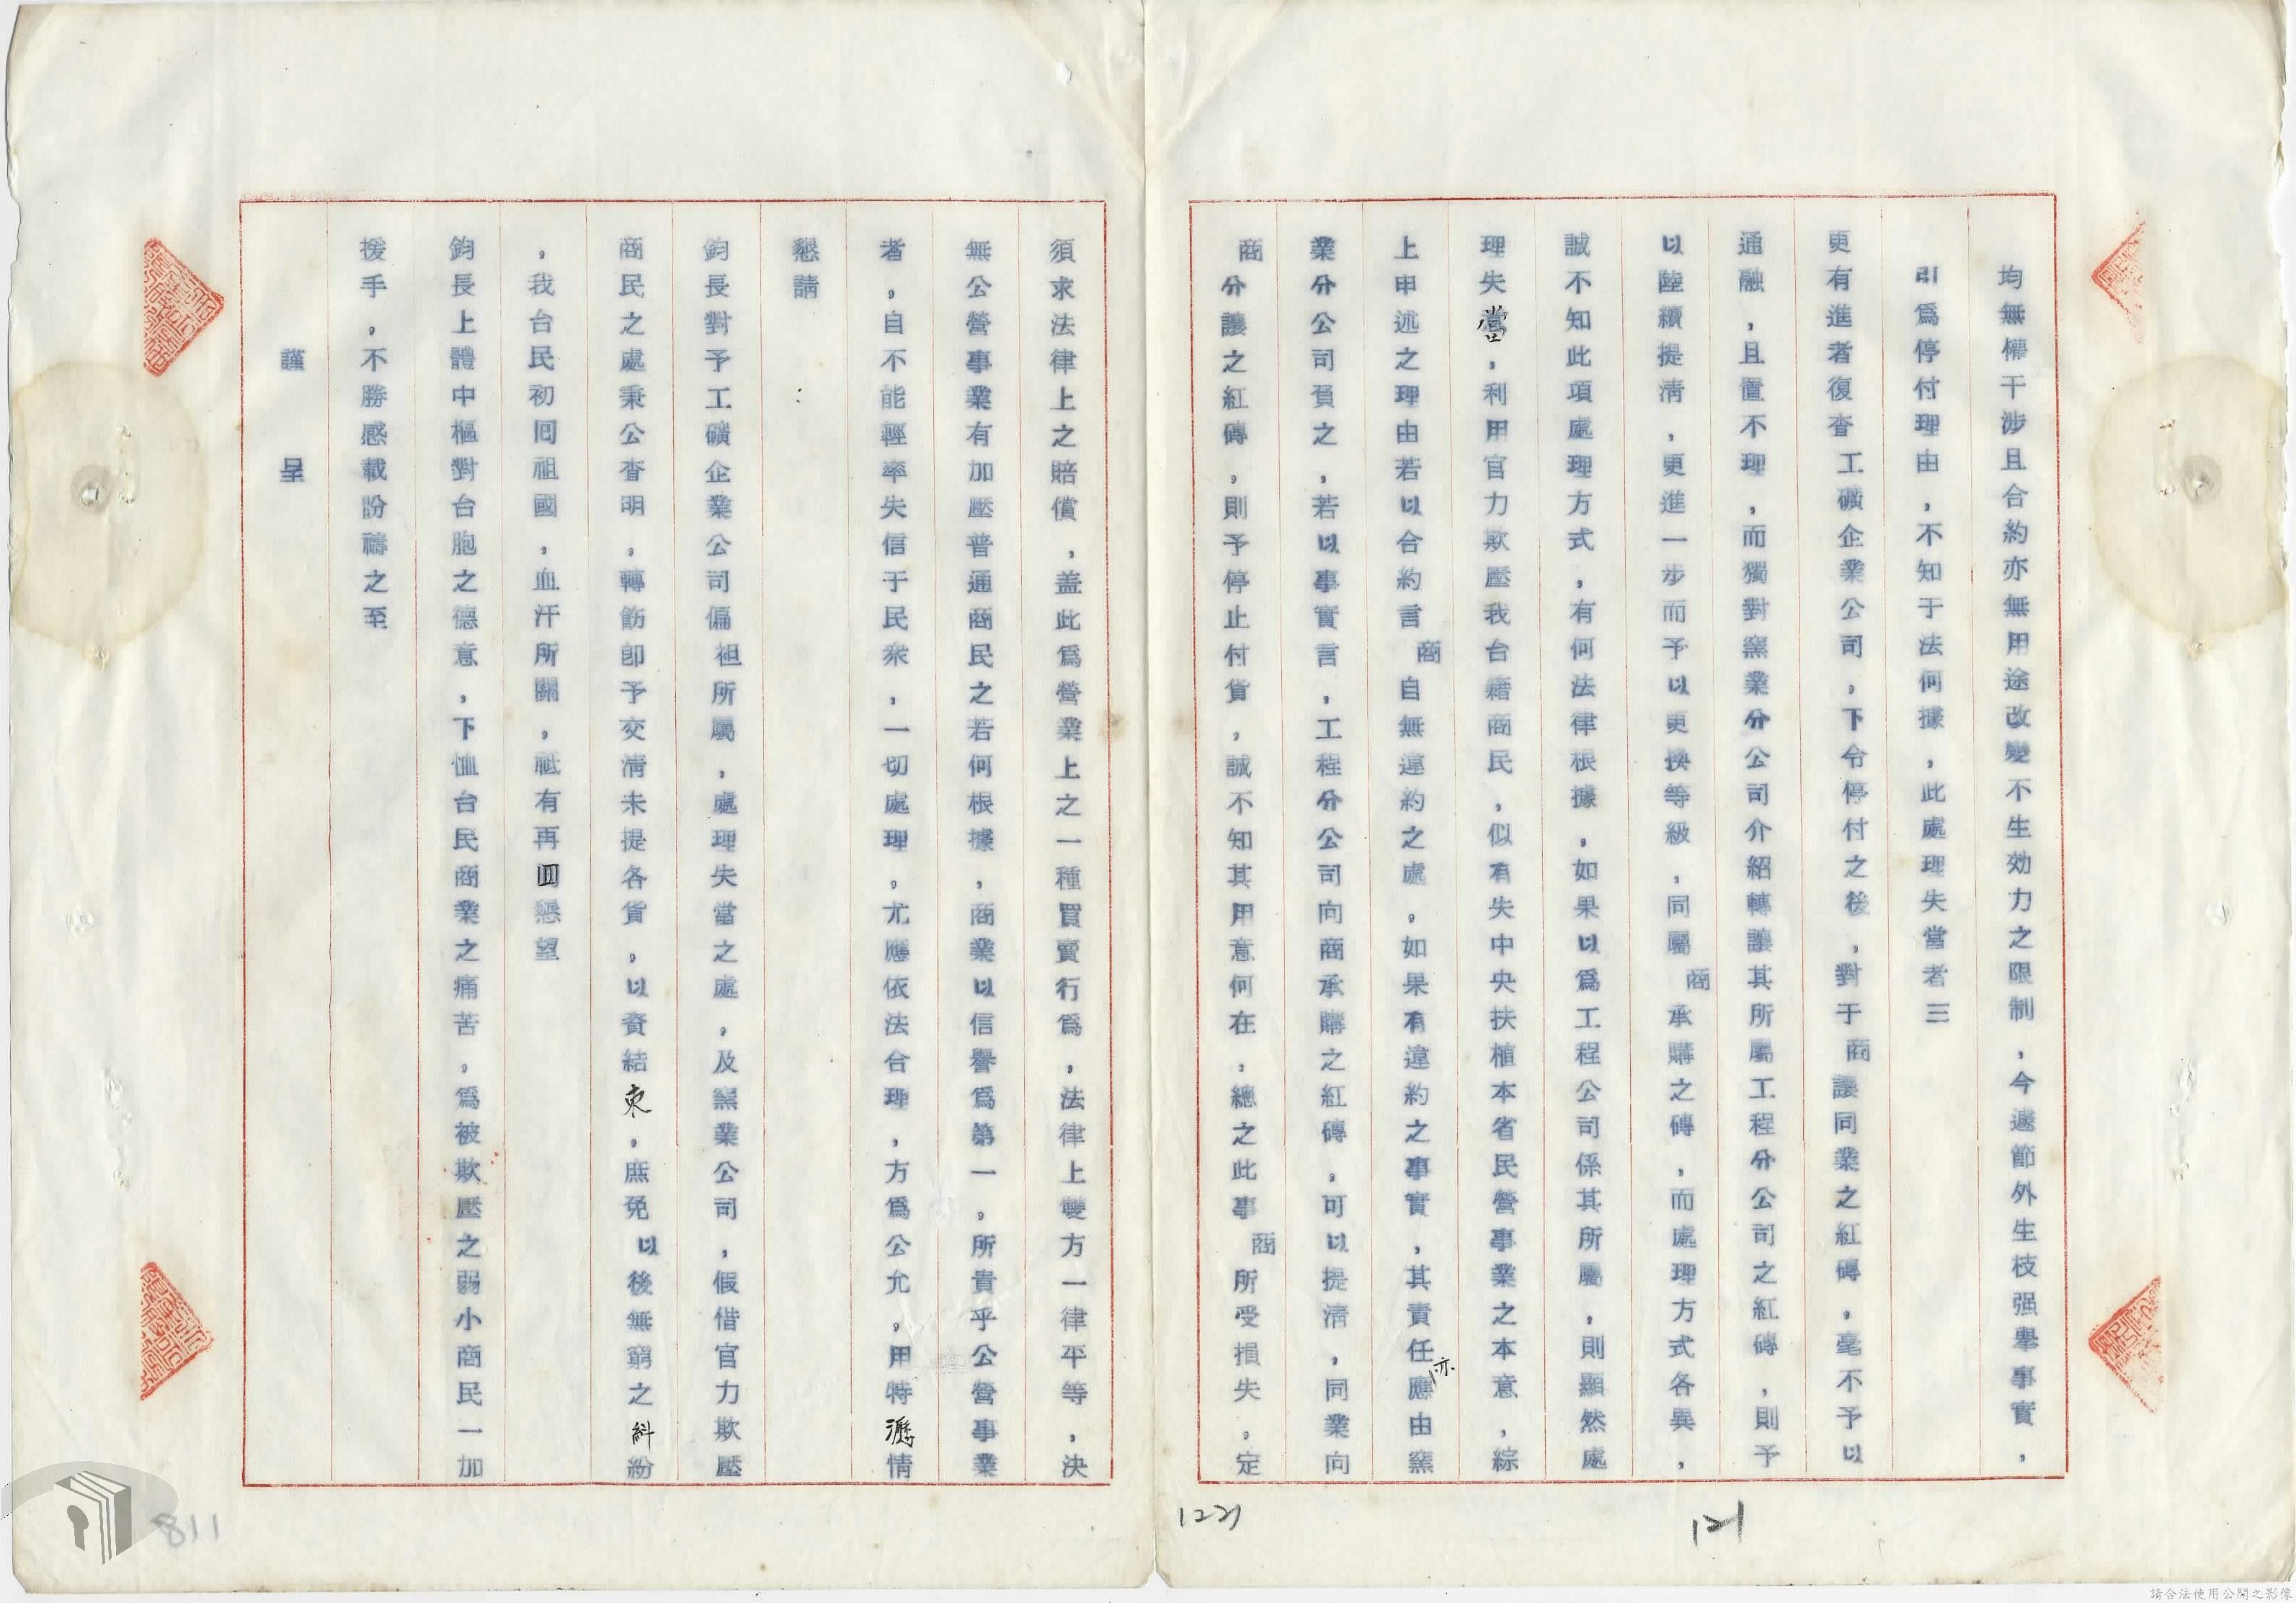 均無權干涉且合約亦無用途改變不生効力之限制，今遽節外生枝强舉事實，
引爲停付理由，不知于法何據，此處理失當者三
更有進者復查工礦企業公司，下令停付之後，對于商讓同業之紅磚，毫不予以
通融，且置不理，而獨對窯業分公司介紹轉讓其所屬工程分公司之紅磚，則予
以陸續提清，更進一步而予以更換等級，同屬商承購之磚，而處理方式各異，
誠不知此項處理方式，有何法律根據，如果以爲工程公司係其所屬，則顯然處
理失當，利用官力欺壓我台籍商民，似有失中央扶植本省民營事業之本意，綜
上申述之理由若以合約言商自無違約之處，如果有違約之事實，其責任亦應由窯
業分公司負之，若以事實言，工程分公司向商承購之紅磚，可以提清，同業向
商分讓之紅磚，則予停止付貨，誠不知其用意何在，總之此事商所受損失，定
須求法律上之賠償，盖此爲營業上之一種買賣行爲，法律上雙方一律平等，決
無公營事業有加壓普通商民之若何根據，商業以信譽爲第一，所貴乎公營事業
者，自不能輕率失信于民衆，一切處理，尤應依法合理，方爲公允，用特瀝情
懇請：
鈞長對予工礦企業公司偏袒所屬，處理失當之處，及窯業公司，假借官力欺壓
商民之處秉公查明，轉飭卽予交清未提各貨，以資結束，庶免以後無窮之糾紛
，我台民初囘祖國，血汗所關，祗有再四懇望
鈞長上體中樞對台胞之德意，下恤台民商業之痛苦，爲被欺壓之弱小商民一加
援手，不勝感載盼禱之至
謹呈
1221
121
811
請合法使用公開之影像